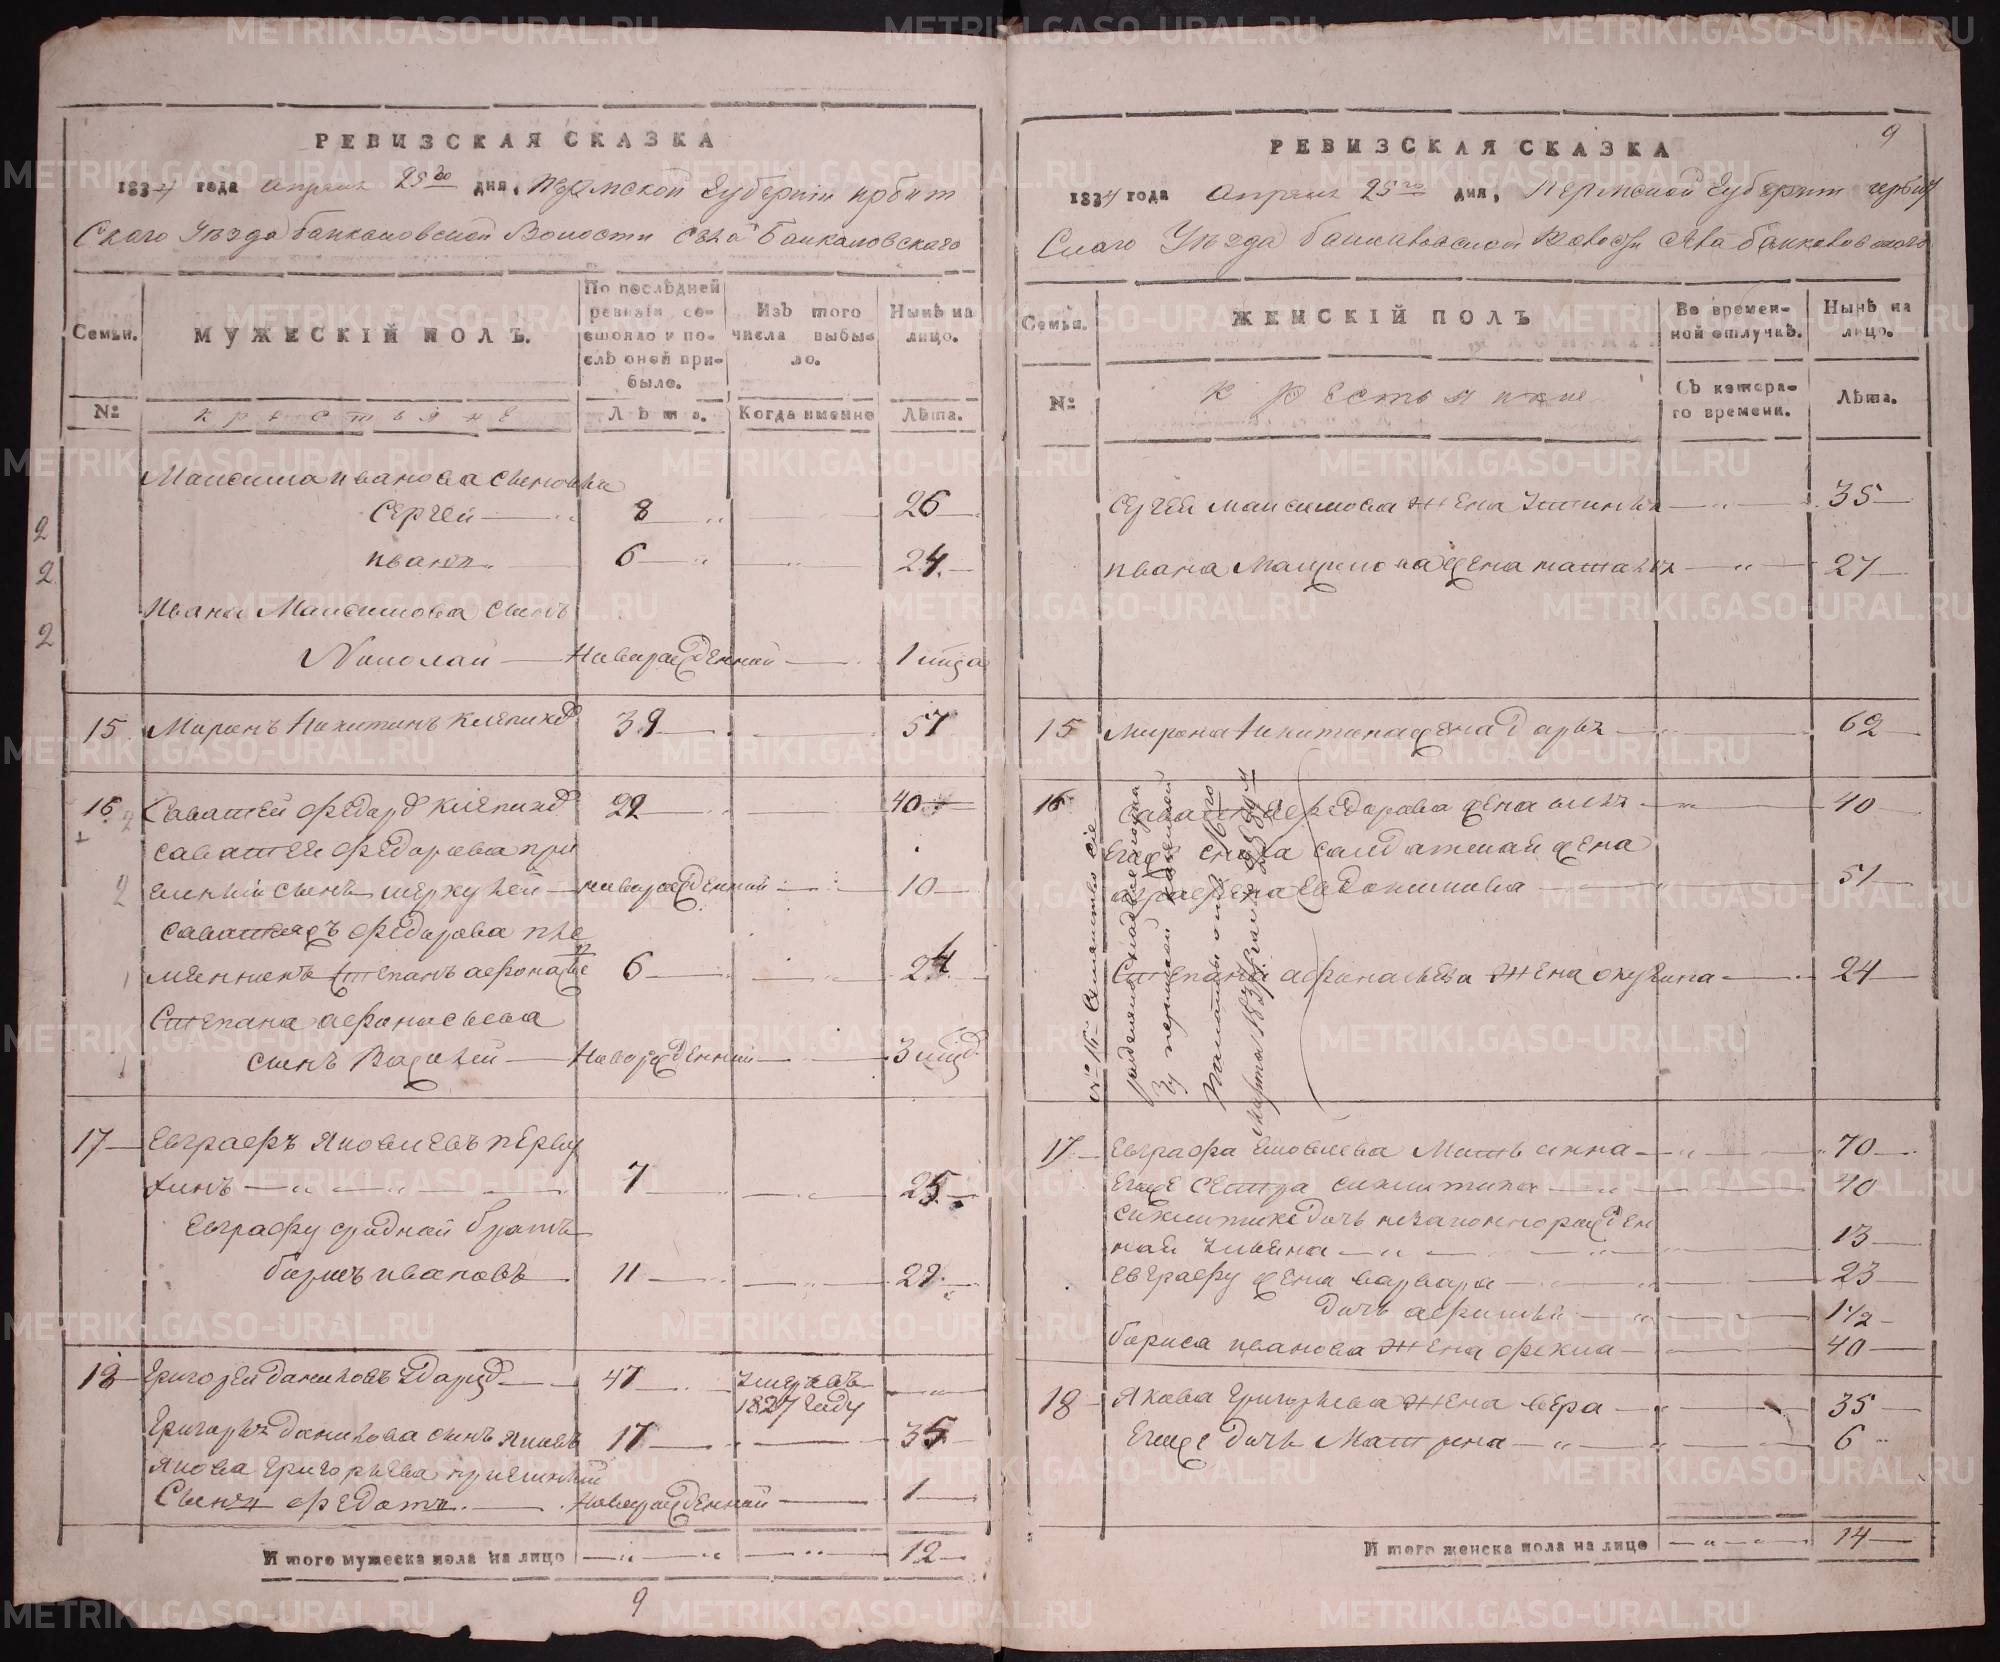 РЕВИЗСКАЯ СКАЗКА
1834 года Апреля 25го дня, Пермской Губерніи Ирбит
Скаго Уезда Баикаловской Волости Села Баикаловскаго
Семьи.
МУЖЕСКІЙ ПОЛЪ.
По послѣдней ревизіи состояло и послѣ оной прибыло.
Изъ того числа выбыло.
Нынѣ на лицо.
№
Крестьяне
Лѣта.
Когда именно
Лѣта.
Максима Иванова сыновья
Сергей 8 26
2
Иванъ 6 24
2
Ивана Максимова сынъ
2
Николай Новорожденной 1 года
15 Миронъ Никитинъ Клепиковъ 39 57
16 Саватей Федоровъ Клепиковъ 22 40
Саватея Федорова при
емный сынъ Меркулей новорожденной 10
2
Саватея Федорова пле
менникъ Степанъ Афонасье 6 24
Степана Афонасьева
сынъ Василей Новорожденный 3
17 Евграфъ Яковлевъ Перву
хинъ 7 25
Евграфу сродной братъ
Борисъ Ивановъ 11 29
18 Григорей Даниловъ 47 Умеръ въ
1827 году
Григорья Данилова сынъ Яковъ 17 35
Якова Григорьева приемный
Сынъ Федотъ Новорожденной 1
Итого мужеска пола на лицо 12
9
9
РЕВИЗСКАЯ СКАЗКА
1834 года Апреля 25го дня, Пермской Губерніи Ирбит
Скаго Уезда Баикаловской Волости Села Баикаловскаго
Семьи.
ЖЕНСКІЙ ПОЛЪ
Во временной отлучкѣ.
Нынѣ на лицо.
№
Крестьяне
Съ котораго времени.
Лѣта.
Сергея Максимова жена Устинья 35
Ивана Максимова жена Наталья 27
15 Мирона Никитина жена Дарья 62
16 Саватея Федорова жена 40
Его сноха салдатская жена
Аграфена Евдокимова 51
Степана Афонасьева жена Окулина 24
17 Евграфа Яковлева Мать Анна 70
Егоже Сестра 40
дочь незаконнорожден
ная Ульяна 13
Евграфу жена Варвара 23
дочь 1 1/2
Бориса Иванова жена Фекла 40
18 Якова Григорьева жена Вера 35
Егоже Дочь Матрена 6
Итого женска пола на лицо 14
METRIKI.GASO-URAL.RU